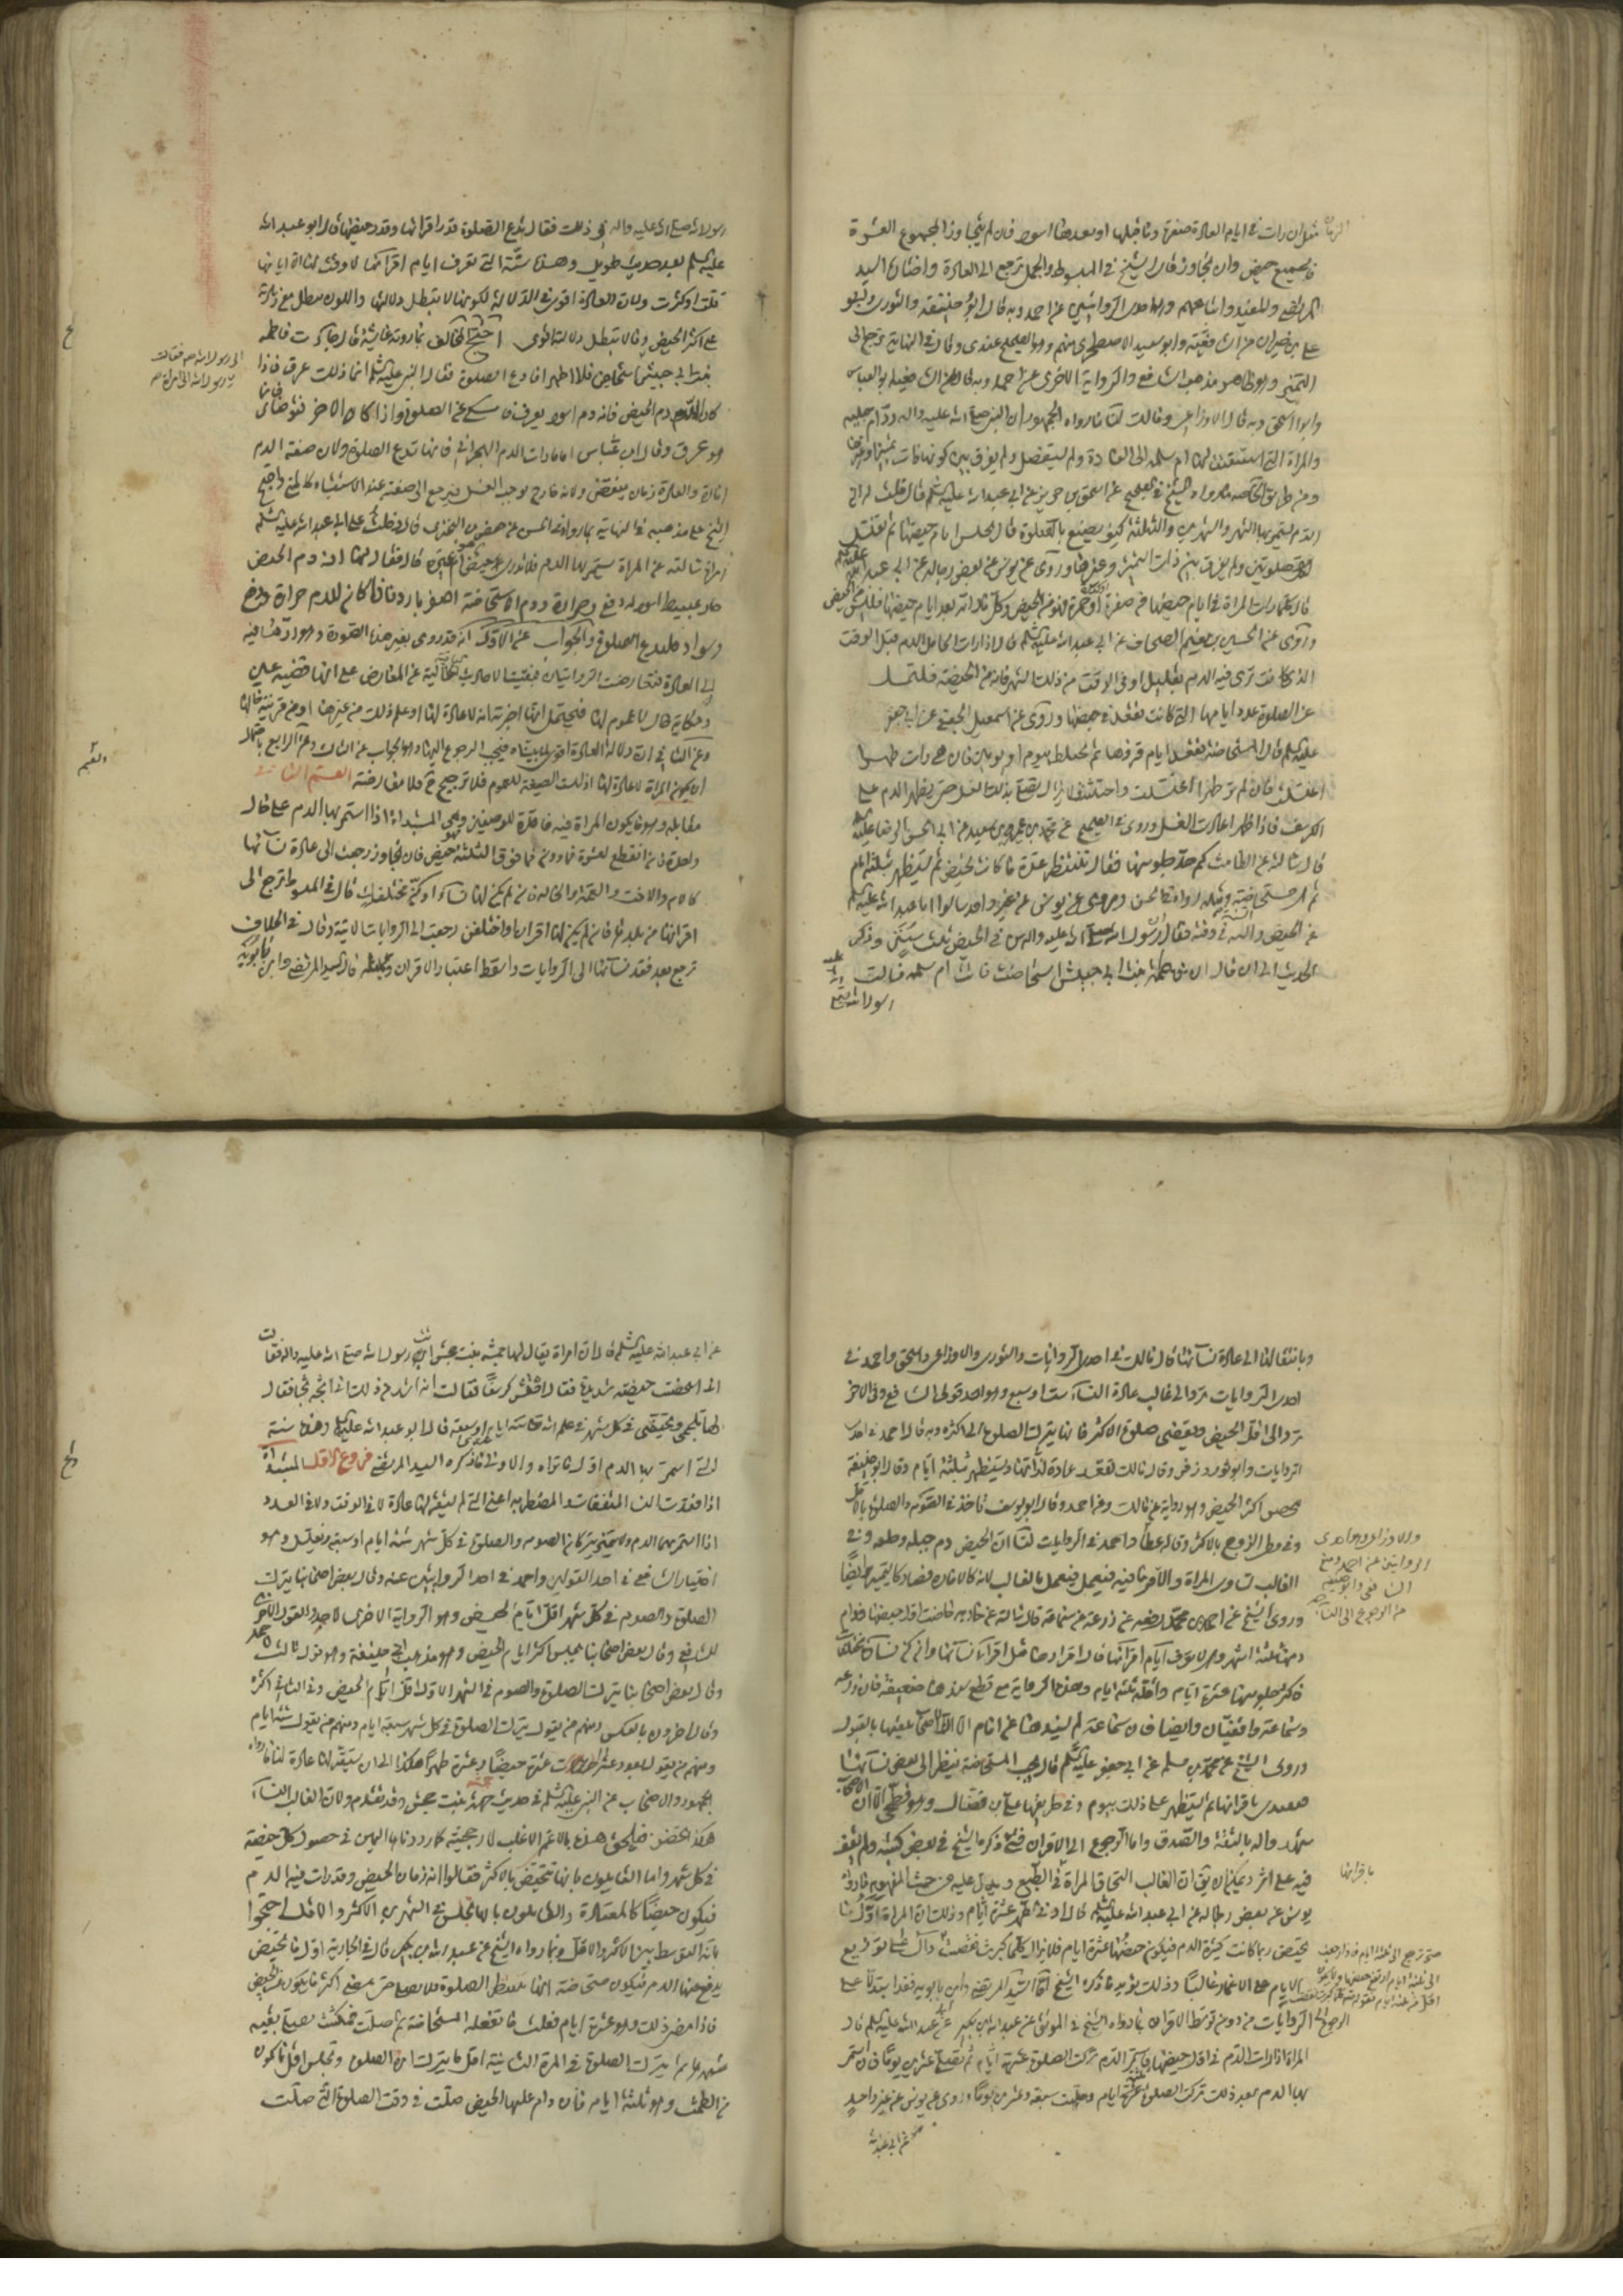 مثل ان رات في ايام العادة صفرة وقبلها او بعدها اسود فان لم يتجاوز المجموع العشرة
فالجميع حيض وان تجاوز قال الشيخ في المبسوط والجمل ترجع الى العادة واختاره السيد
المرتضى والمفيد واتباعهم وهو احدى الروايتين عن احمد وبه قال ابو حنيفة والثوري وابو
علي بن خيران من الشافعية وابو سعيد الاصطخري منهم وهو الصحيح عندي وقال في النهاية ترجع الى
التميز وهو ظاهر مذهب الشافعي والرواية الاخرى عن احمد وبه قال من الشافعية ابو العباس
وابو اسحق وبه قال الاوزاعي ومالك لنا ما رواه الجمهور ان النبي صلى الله عليه واله رد ام حبيبه
والمراة التي استفتت لها ام سلمه الى العادة ولم يستفصل ولم يفرق بين كونها ذات تميز او غيرها
ومن طريق الخاصه ما رواه الشيخ في الصحيح عن اسحق بن جرير عن ابي عبد الله عليه السلم قال قلت له ان
الدم يستمر بها الشهر والشهرين والثلثة كيف يصنع بالصلوة قال تجلس ايام حيضها ثم تغتسل
لكل صلوتين ولم يفرق بين ذات التميز وغيرها وروى عن يونس عن بعض رجاله عن ابي عبد الله عليه السلم
قال كلما رات المراة في ايام حيضها من صفرة او حمرة فهو من الحيض وكل ما راته بعد ايام حيضها فليس من الحيض
وروى عن الحسين بن نعيم الصحاف عن ابي عبد الله عليه السلم قال اذا رات الحامل الدم قبل الوقت
الذي كانت ترى فيه الدم بقليل او في الوقت من ذلك الشهر فانه من الحيضة فلتمسك
عن الصلوة عدد ايامها التي كانت تقعد في حيضها وروى عن اسمعيل الجعفي عن ابي جعفر
عليه السلم قال المستحاضة تقعد ايام قرئها ثم تحتاط بيوم او يومين فان هي رات طهرا
اغتسلت فان لم تر طهرا اغتسلت واحتشت فلا تزال تصلي بذلك الغسل حتى يظهر الدم على
الكرسف فاذا ظهر اعادت الغسل وروى في الصحيح عن محمد بن عمرو بن سعيد عن ابي الحسن الرضا عليه السلم
قال سالته عن الطامث كم حد جلوسها فقال تنتظر عدة ما كانت تحيض ثم تستظهر بثلثة ايام
ثم هي مستحاضة ومثله رواه في الحسن وروى عن يونس عن غير واحد سالوا ابا عبد الله عليه السلم
عن الحيض والسنة في وقته فقال ان رسول الله صلى الله عليه واله سن في الحيض ثلث سنن وذكر
الحديث الى ان قال ان فاطمة بنت ابي حبيش استحاضت فاتت ام سلمه فسالت
رسول الله صلى الله عليه واله
رسول الله صلى الله عليه واله عن ذلك فقال تدع الصلوة قدر اقرائها وقدر حيضها قال ابو عبد الله
عليه السلم بعد حديث طويل وهذه سنة التي تعرف ايام اقرائها لا وقت لها الا ايامها
قلت او كثرت ولان العادة اقوى في الدلالة لكونها لا تبطل دلالتها واللون يبطل مع زيادته
على اكثر الحيض وما لا تبطل دلالته اقوى احتج المخالف بما روته عايشة قال جاءت فاطمه
بنت ابي حبيش
اني استحاض فلا اطهر افادع الصلوة فقال النبي عليه السلم انما ذلك عرق فاذا
الى رسول الله ص فقالت
يا رسول الله اني امراة
كان دم الحيض فانه دم اسود يعرف فامسكي عن الصلوة واذا كان الاخر فتوضاي فانما
هو عرق وقال ابن عباس اما ما رات الدم البحراني فانها تدع الصلوة ولان صفة الدم
امارة والعادة زمان منقض ولانه خارج يوجب الغسل فيرجع الى صفته عند الاشتباه كالمني واحتج
الشيخ على مذهبه في النهاية بما رواه في الحسن عن حفص بن البختري قال دخلت على ابي عبد الله عليه السلم
امراة سالته عن المراة يستمر بها الدم فلا تدري حيض هو ام غيره قال فقال لها ان دم الحيض
حار عبيط اسود له دفع وحرارة ودم الاستحاضة اصفر بارد فاذا كان للدم حرارة ودفع
وسواد فلتدع الصلوة والجواب عن الاول انه قد روي بغير هذه الصورة
الى العادة فتعارضت الروايتان فبقيت الاحاديث الباقية خالية عن المعارض على انها قضية عين
وحكاية حال لا عموم لها فيحتمل انها اخبرته انه لا عادة لها او علم ذلك من غيرها او من قرينة حالها
وعن الثاني ان دلالة العادة اقوى لما بيناه فيجب الرجوع اليها وهو الجواب عن الثالث وعن الرابع باحتمال
ان يكون المراة لا عادة لها اذ ليست الصيغة للعموم فلا ترجيح ثم فلا معارضة القسم الثاني
مقابله وهو ما يكون المراة فيه فاقدة للوصفين وهي المبتداة اذا استمر بها الدم على حال
واحدة فان انقطع لعشرة فما دون مما فوق الثلثة فهو حيض فان تجاوز رجعت الى عادة نسائها
كالام والاخت والعمة والخالة فان لم يكن لها نساء او كن مختلفات قال في المبسوط ترجع الى
اقرانها من بلدها فان لم يكن لها اقران او اختلفن رجعت الى الروايات الاتية وقال في الخلاف
ترجع بعد فقد نسائها الى الروايات واسقط اعتبار الاقران وبمثله قال السيد المرتضى وابن بابويه
وبانتقالها الى عادة نسائها قال مالك في احدى الروايات والثوري والاوزاعي واسحق واحمد في
احدى الروايات ترد الى غالب عادة النساء ست او سبع وهو احد قولي الشافعي وفي الاخر
ترد الى اقل الحيض وتقضي صلوة الاكثر فانها تترك الصلوة الى اكثره وبه قال احمد في احدى
الروايات وابو ثور وزفر وقال مالك تقعد عادة لداتها وتستظهر بثلثة ايام وقال ابو حنيفة
تحيض اكثر الحيض وهو رواية عن مالك وعن احمد وقال ابو يوسف تاخذ في الصوم والصلوة بالاقل
وفي وطئ الزوج بالاكثر وقال عطا واحمد في الروايات لنا ان الحيض دم جبلة
والاوزاعي وهو احدى
الروايتين عن احمد ومنع
الشافعي وابو حنيفه
من الرجوع الى النساء
وروى الشيخ عن احمد بن محمد رفعه عن زرعة عن سماعة قال سالته عن جارية حاضت اول حيضها فدام
دمها ثلثة اشهر وهي لا تعرف ايام اقرائها قال اقراؤها مثل اقراء نسائها وان كن نساؤها مختلفات
فاكثر جلوسها عشرة ايام واقله ثلثة ايام وهذه الرواية مع قطع سندها ضعيفة فان زرعه
وسماعة واقفيان وايضا فان سماعة لم يسندها عن امام الا ان الاصحاب تلقتها بالقبول
وروى الشيخ عن محمد بن مسلم عن ابي جعفر عليه السلم قال يجب للمستحاضة ان ينظر الى بعض نسائها
فتقتدي باقرائها ثم تستظهر على ذلك بيوم وفي طريقها علي بن فضال وهو فطحي الا ان الاصحاب
شهدوا له بالثقة والصدق واما الرجوع الى الاقران فشئ ذكره الشيخ في بعض كتبه ولم نقف
فيه على اثر ويمكن ان يقال ان الغالب التحاق المراة في الطبع باقرانها ويدل عليه من حيث المفهوم ما رواه
يونس عن بعض رجاله عن ابي عبد الله عليه السلم قال ادنى الطهر عشرة ايام وذلك ان المراة اول ما
تحيض ربما كانت كثيرة الدم فيكون حيضها عشرة ايام فلا تزال كلما كبرت نقصت
حتى ترجع الى ثلثة ايام
وذلك يؤيد ما ذكره الشيخ اما السيد المرتضى وابن بابويه فقد استدلا على
الرجوع الى الروايات من دون توسط الاقران بما رواه الشيخ في الموثق عن عبد الله بن بكير عن ابي عبد الله عليه السلم قال
المراة اذا رات الدم في اول حيضها فاستمر الدم تركت الصلوة عشرة ايام ثم تصلي عشرين يوما فان استمر
بها الدم بعد ذلك تركت الصلوة ثلثة ايام وصلت سبعة وعشرين يوما وروى عن يونس عن غير واحد
عن ابي عبد الله
عن ابي عبد الله عليه السلم قال ان امراة يقال لها حمنة بنت جحش اتت رسول الله صلى الله عليه واله فقالت
اني استحضت حيضة شديدة فقال احتشي كرسفا فقالت انه اشد من ذلك اني اثجه ثجا فقال
لها تلجمي وتحيضي في كل شهر في علم الله ستة ايام او سبعة قال ابو عبد الله عليه السلم وهذه سنة
التي استمر بها الدم اول ما تراه والاولى ما ذكره السيد المرتضى فروع الاول المبتداة
اذا فقدت النساء المتفقات والمضطربه اعني التي لم يستقر لها عادة لا في الوقت ولا في العدد
اذا استمر بهما الدم ولا تميز يتركان الصوم والصلوة في كل شهر ستة ايام او سبعة وتغتسل وهو
اختيار الشافعي في احد القولين واحمد في احد الروايتين عنه وقال بعض اصحابنا يترك
الصلوة والصوم في كل شهر اقل ايام الحيض وهو الرواية الاخرى لاحمد والقول الاخر
للشافعي وقال بعض اصحابنا يجلس اكثر ايام الحيض وهو مذهب ابي حنيفة وهو قول مالك
وقال بعض اصحابنا يترك الصلوة والصوم في الشهر الاول اقل ايام الحيض وفي الثاني اكثره
وقال اخرون بالعكس ومنهم من يقول يترك الصلوة في كل شهر سبعة ايام ومنهم من يقول ستة ايام
ومنهم من يقول بعد عشرة حيضا وعشرة طهرا هكذا الى ان يستقر لها عادة لنا ما رواه
الجمهور والاصحاب عن النبي عليه السلم في حديث حمنة بنت جحش وقد تقدم ولان الغالب النساء
هكذا يحضن فيلحق هذه بالاعم الاغلب لارجحيته كما رددناها اليهن في حصول كل حيضة
في كل شهر واما القايلون بانها تتحيض بالاكثر فقالوا انه زمان الحيض وقد رات فيه الدم
فيكون حيضا كالمعتادة والقايلون بانها تجلس في الشهرين الاكثر والاقل احتجوا
بانه التوسط بين الاكثر والاقل وبما رواه الشيخ عن عبد الله بن بكير قال في الجارية اول ما تحيض
يدفع عنها الدم فيكون مستحاضة انها تنتظر الصلوة فلا تصلي حتى يمضي اكثر ما يكون من الحيض
فاذا مضى ذلك وهو عشرة ايام فعلت ما تفعله المستحاضة ثم صلت فمكثت تصلي بقية
شهرها ثم تترك الصلوة في المرة الثانية اقل ما تترك امراة الصلوة وتجلس اقل ما يكون
من الطمث وهو ثلثة ايام فان دام عليها الحيض صلت في وقت الصلوة التي صلت